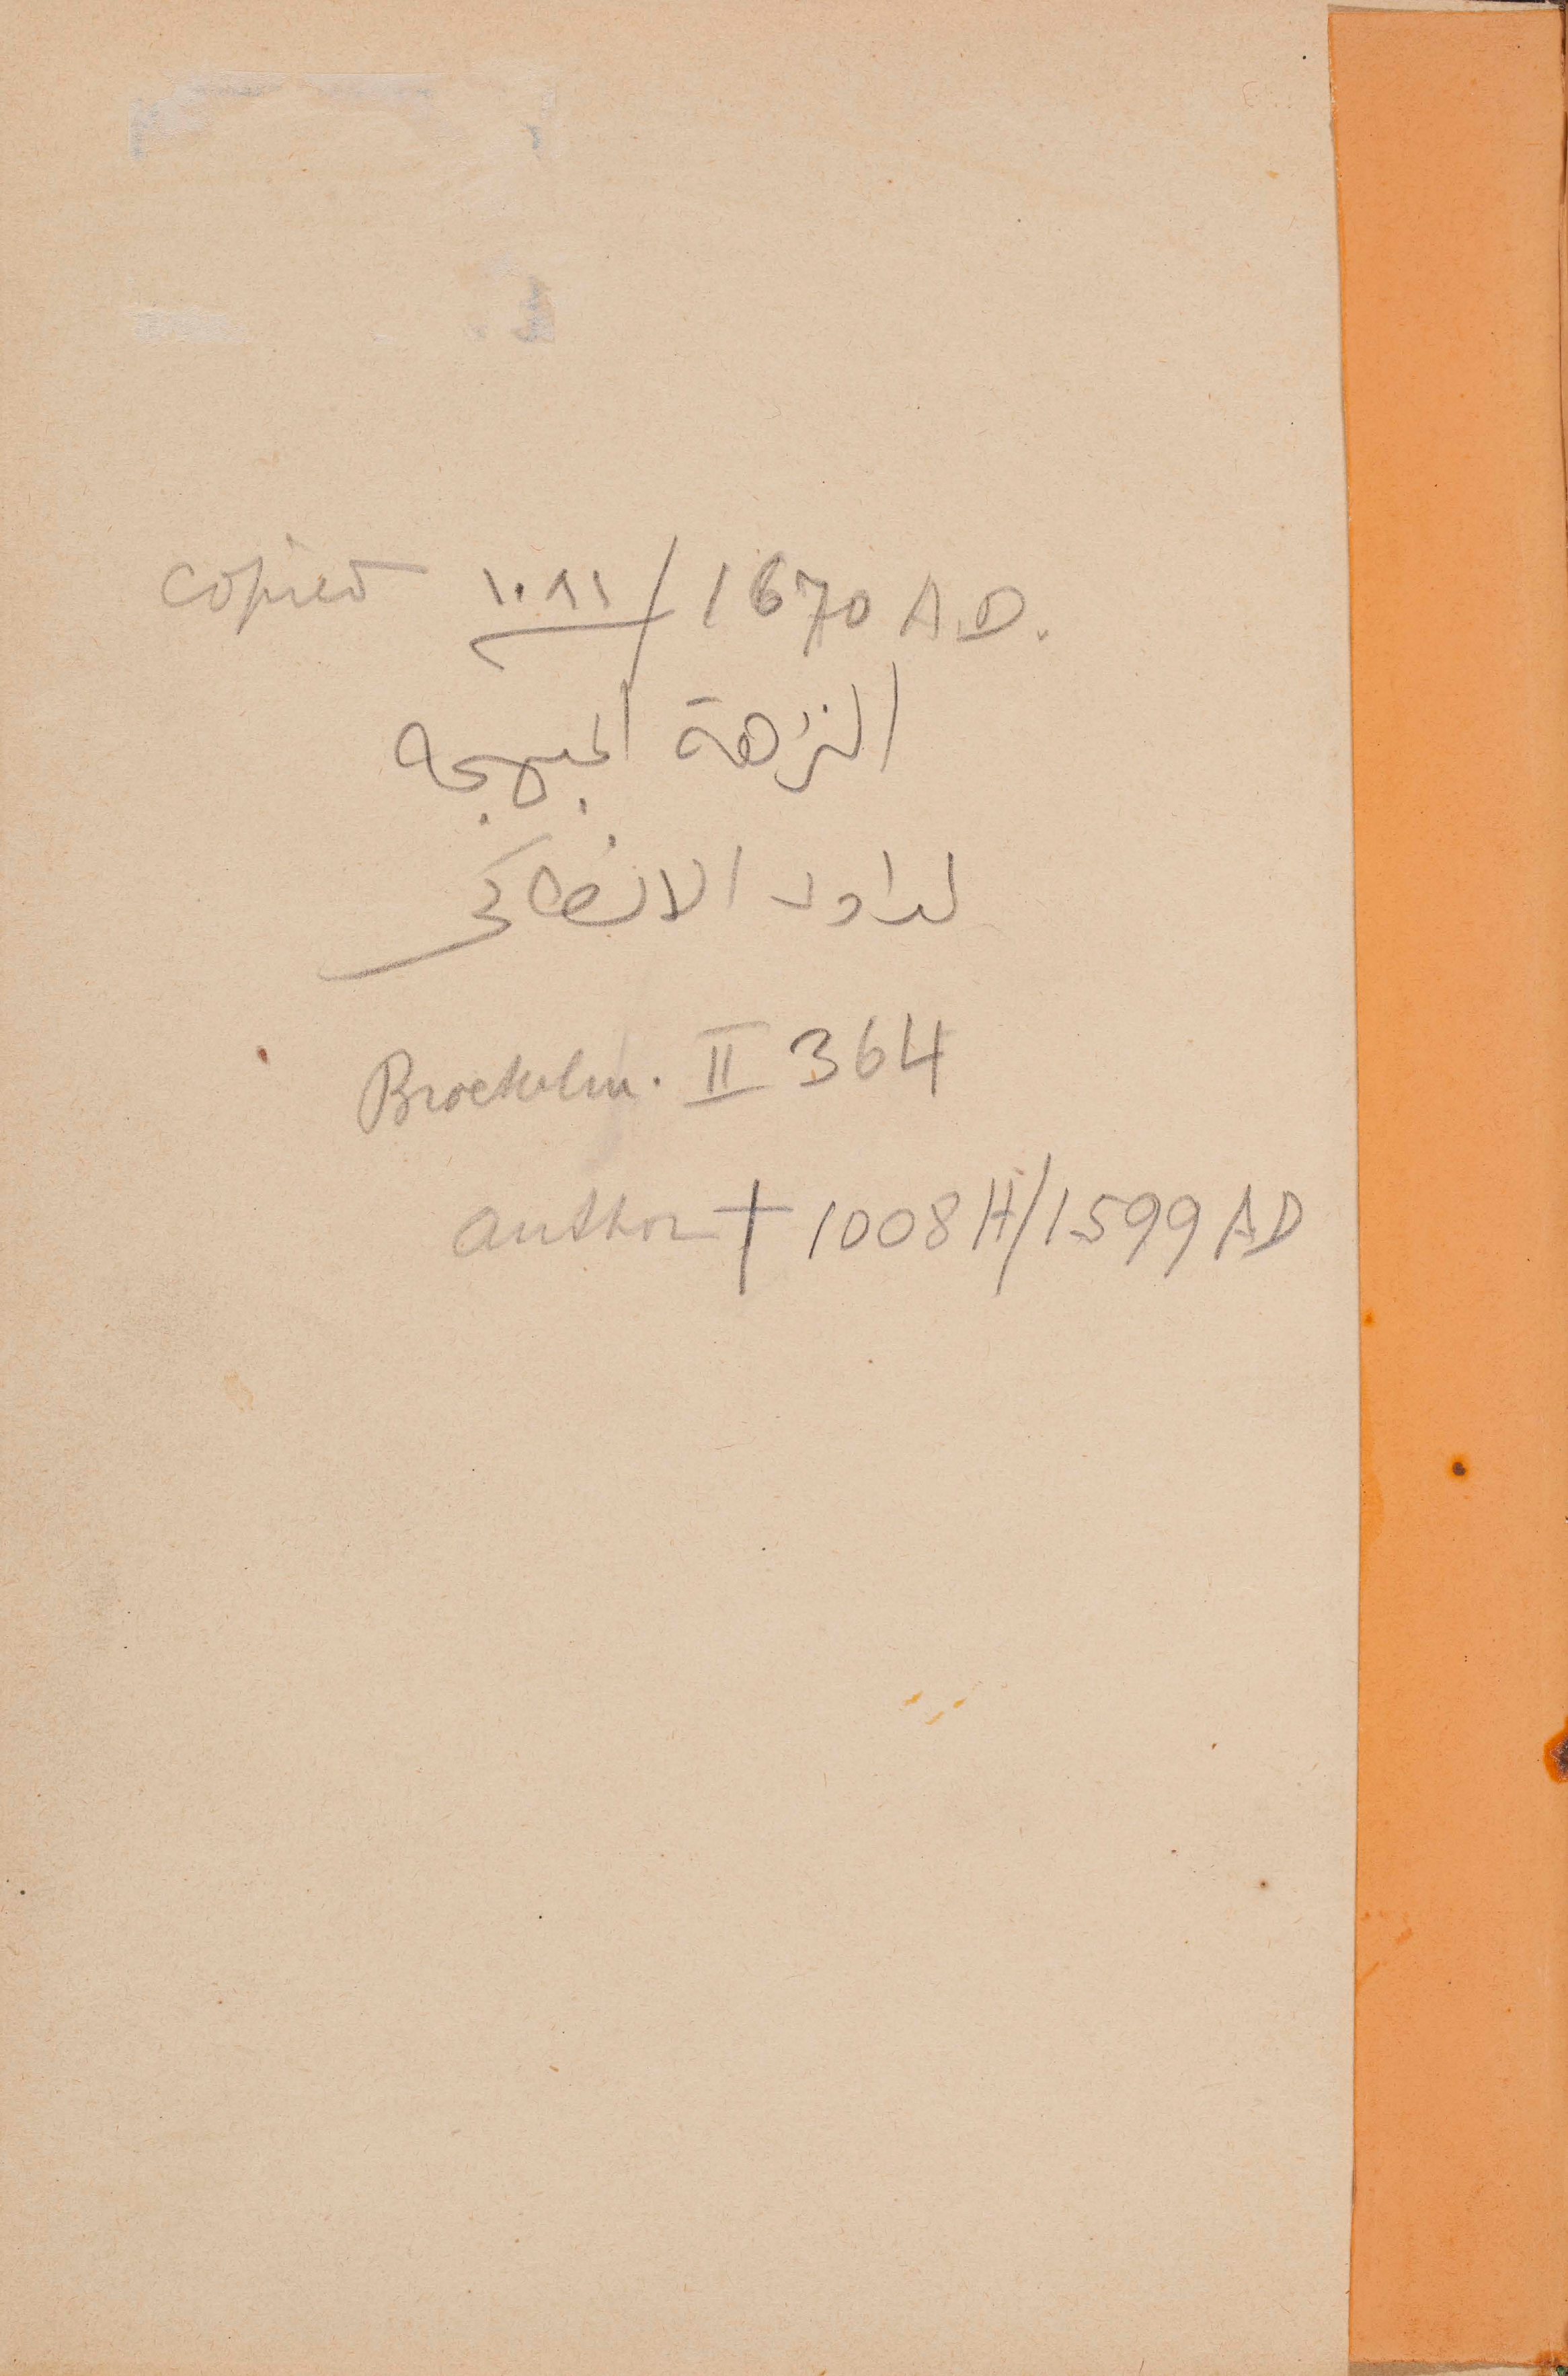 copied ١٠٨١/1670 A.D.
النزهة المبهجه
لداود الانطاكي
Brockelm. II 364
author † 1008 H/1599 AD